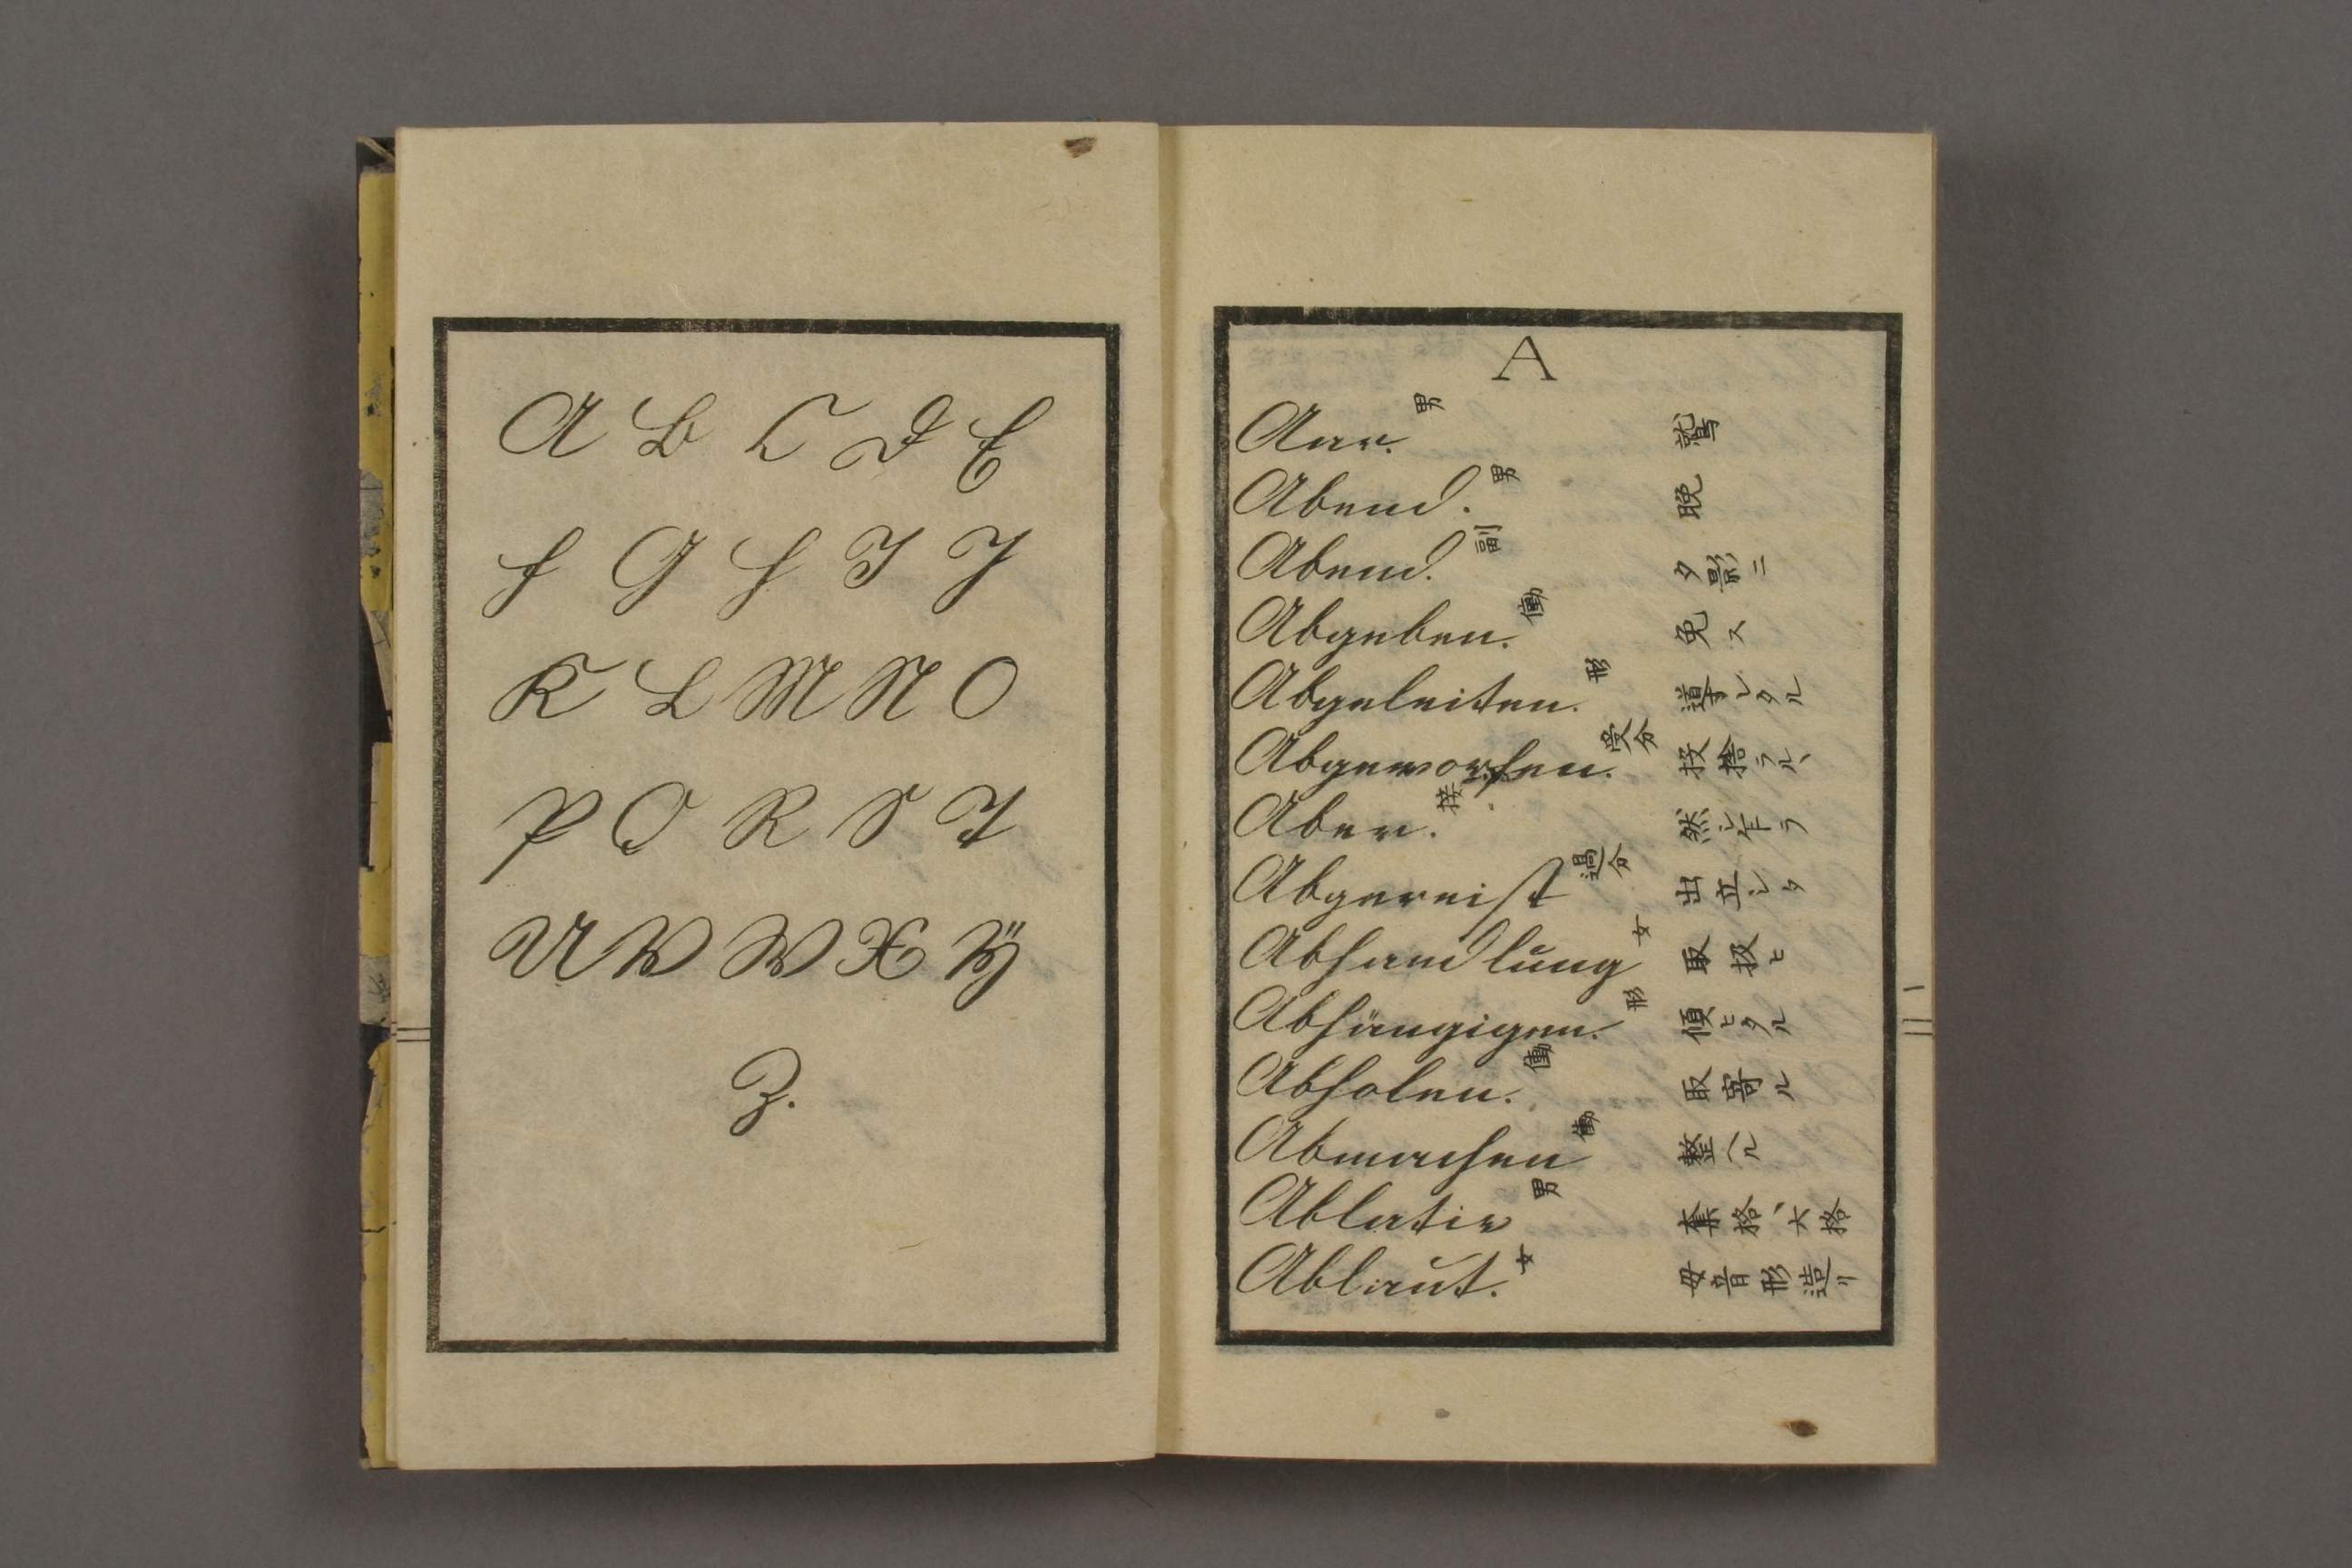 A B C D E
F G H I J
K L M N O
P Q R S T
U V W X Ÿ
Z.
A
Aar. 男 鷲
Abend. 男 晩
Abend. 副 夕影ニ
Abgeben. 働 免ス
Abgeleiten. 形 導レタル
Abgeworfen. 受分 投捨ラル、
Aber. 接 然シ乍ラ
Abgereist 過分 出立シタ
Abhandlung 女 取扱ヒ
Abhängigen. 形 傾ヒタル
Abholen. 働 取寄ル
Abmachen 働 整ヘル
Ablativ 男 奪格、大格
Ablaut. 女 母音形造リ